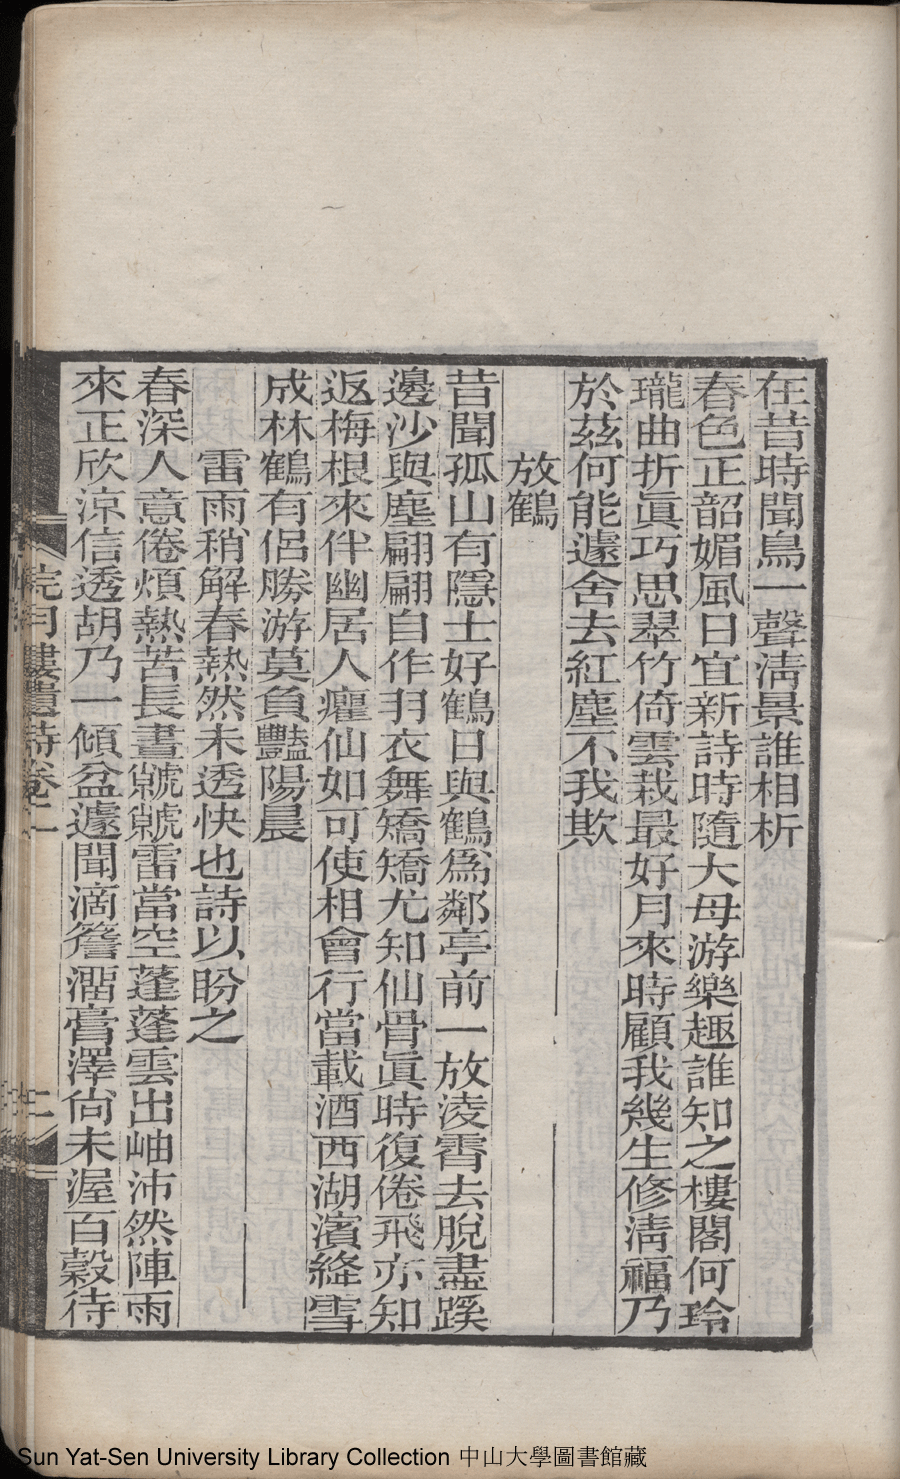 在昔時聞鳥一聲淸景誰相析
春色正韶媚風日宜新詩時隨大母游樂趣誰知之樓閣何玲
瓏曲折眞巧思翠竹倚雲栽最好月來時顧我幾生修淸福乃
於茲何能遽舍去紅塵不我欺
放鶴
昔聞孤山有隱士好鶴日與鶴爲鄰亭前一放淩霄去脫盡蹊
邊沙與塵翩翩自作羽衣舞矯矯尤知仙骨眞時復倦飛亦知
返梅根來伴幽居人癯仙如可使相會行當載酒西湖濱絳雪
成林鶴有侶勝游莫負豔陽晨
雷雨稍解春熱然未透快也詩以盼之
春深人意倦煩熱苦長晝虩虩雷當空蓬蓬雲出岫沛然陣雨
來正欣涼信透胡乃一傾盆遽聞滴簷霤膏澤尙未渥百穀待
院月樓遺詩卷二
二
Sun Yat-Sen University Library Collection 中山大學圖書館藏